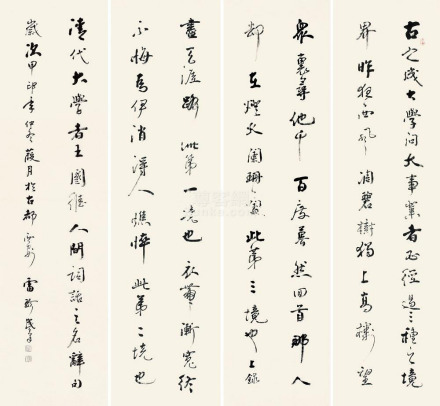 古之成大學問大事業者必經過三種之境
界昨夜西風凋碧樹獨上高樓望
盡天涯路此第一境也衣帶漸寬終
不悔為伊消得人憔悴此第二境也
眾裏尋他千百度驀然回首那人
却在燈火闌珊處此第三境也上錄
清代大學者王國維人間詞話之名辭句
歲次甲申年仲冬葭月於古都 雷珍民